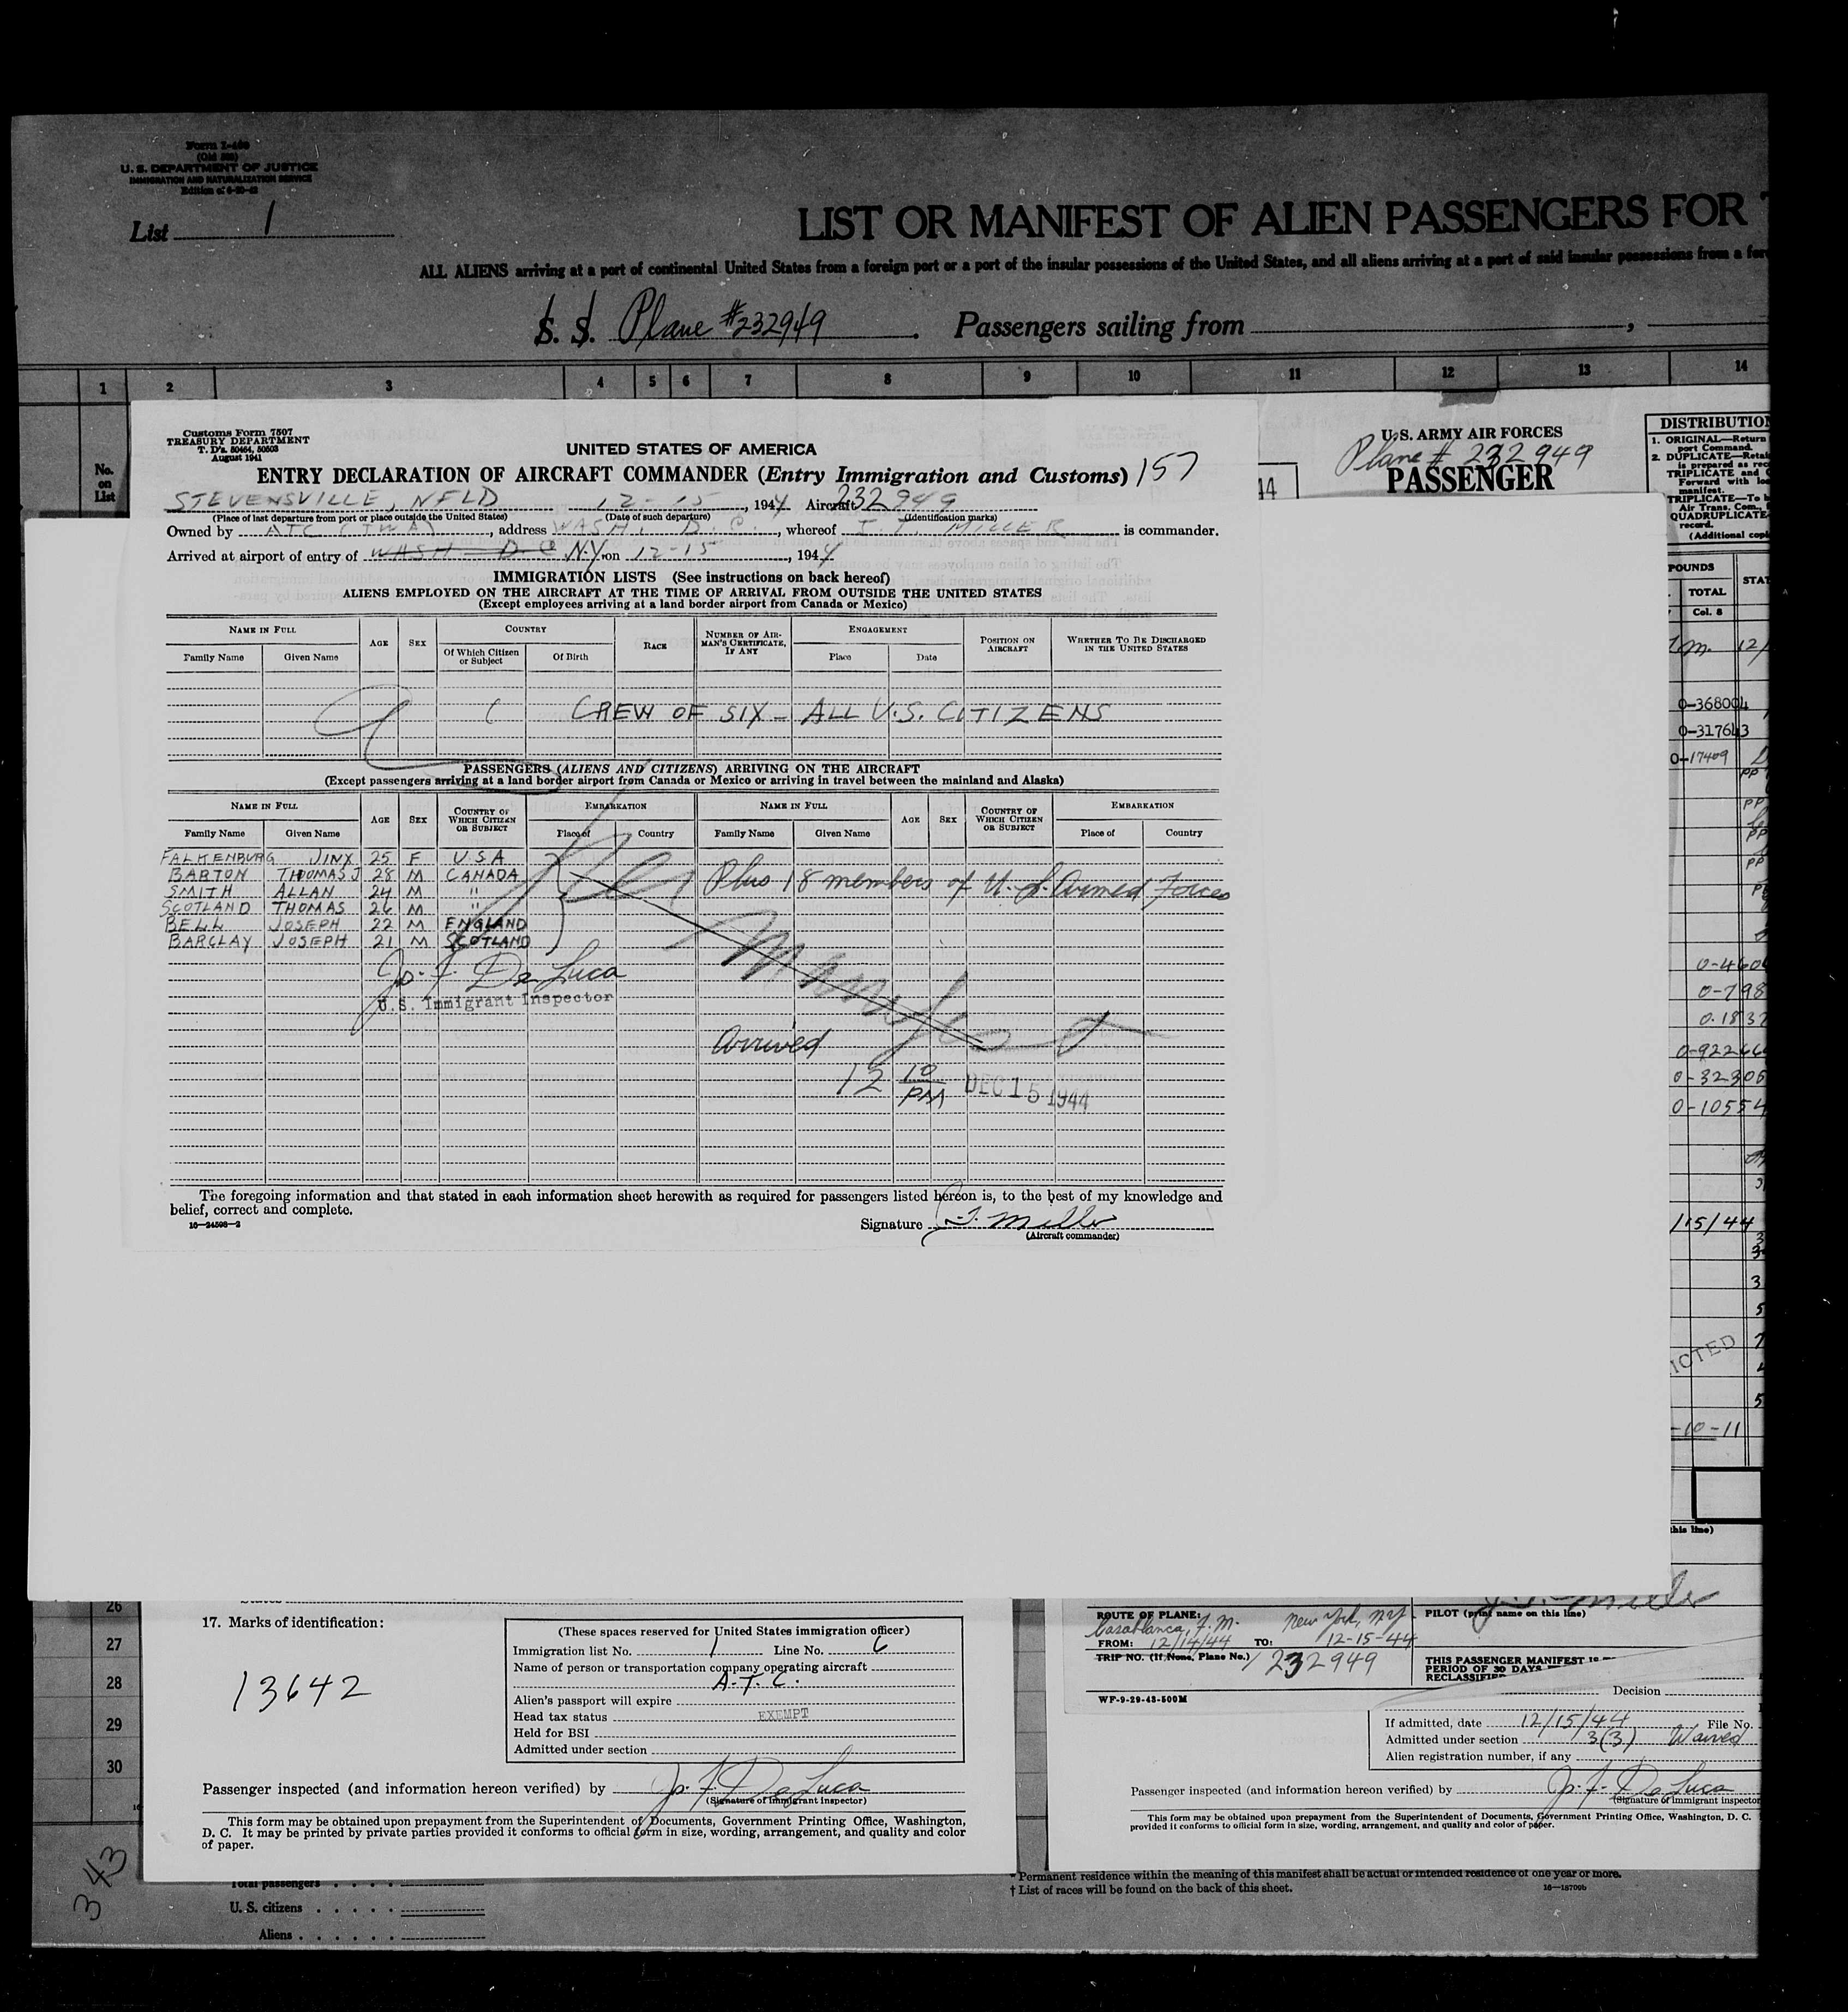 Form I-466
(Old 500)
U. S. DEPARTMENT OF JUSTICE
IMMIGRATION AND NATURALIZATION SERVICE
List 1
LIST OR MANIFEST OF ALIEN PASSENGERS FOR
ALL ALIENS arriving at a port of continental United States from a foreign port or a port of the insular possessions of the United States, and all aliens arriving at a port of said insular possessions from a
S. S. Plane #232949. Passengers sailing from
1 2 3 4 5 6 7 8 9 10 11 12 13 14
No. on List
Customs Form 7507
TREASURY DEPARTMENT
T. D's. 50464, 50503
August 1941
UNITED STATES OF AMERICA
ENTRY DECLARATION OF AIRCRAFT COMMANDER (Entry Immigration and Customs) 157
STEVENSVILLE, NFLD 12-15, 1944 Aircraft 232949
(Place of last departure from port or place outside the United States) (Date of such departure) (Identification marks)
Owned by ATC (TWA), address WASH, D.C., whereof I. T. MILLER is commander.
Arrived at airport of entry of WASH D C N.Y. on 12-15, 1944
IMMIGRATION LISTS (See instructions on back hereof)
ALIENS EMPLOYED ON THE AIRCRAFT AT THE TIME OF ARRIVAL FROM OUTSIDE THE UNITED STATES
(Except employees arriving at a land border airport from Canada or Mexico)
NAME IN FULL AGE SEX COUNTRY RACE NUMBER OF AIRMAN'S CERTIFICATE, IF ANY ENGAGEMENT POSITION ON AIRCRAFT WHETHER TO BE DISCHARGED IN THE UNITED STATES
Family Name Given Name Of Which Citizen or Subject Of Birth Place Date
CREW OF SIX - ALL U.S. CITIZENS
PASSENGERS (ALIENS AND CITIZENS) ARRIVING ON THE AIRCRAFT
(Except passengers arriving at a land border airport from Canada or Mexico or arriving in travel between the mainland and Alaska)
NAME IN FULL AGE SEX COUNTRY OF WHICH CITIZEN OR SUBJECT EMBARKATION NAME IN FULL AGE SEX COUNTRY OF WHICH CITIZEN OR SUBJECT EMBARKATION
Family Name Given Name Place of Country Family Name Given Name Place of Country
FALKENBURG JINX 25 F U S A
BARTON THOMAS J 28 M CANADA Plus 18 members of U.S. Armed Forces
SMITH ALLAN 24 M "
SCOTLAND THOMAS 26 M "
BELL JOSEPH 22 M ENGLAND
BARCLAY JOSEPH 21 M SCOTLAND
Jos. F. De Luca
U.S. Immigrant Inspector
Manifest
Arrived
12 10 PM DEC 15 1944
The foregoing information and that stated in each information sheet herewith as required for passengers listed hereon is, to the best of my knowledge and
belief, correct and complete.
16—24598-2
Signature I. T. Miller
(Aircraft commander)
44
U.S. ARMY AIR FORCES
Plane # 232949
PASSENGER
DISTRIBUTION
1. ORIGINAL—Return
port Command.
2. DUPLICATE—Retai
is prepared as rec
TRIPLICATE and
Forward with
manifest.
TRIPLICATE—To
Air Trans. Com.,
QUADRUPLICATE
record.
(Additional copi
POUNDS
TOTAL
STAT
Col. 8
0-368004
0-317643
0-17409
0-460
0-798
0-1837
0-92266
0-32306
0-10554
/15/44
ICTED
-10-11
this line)
26
27
28
29
30
17. Marks of identification:
13642
(These spaces reserved for United States immigration officer)
Immigration list No. 1 Line No. 6
Name of person or transportation company operating aircraft
A.T.C.
Alien's passport will expire
Head tax status EXEMPT
Held for BSI
Admitted under section
Passenger inspected (and information hereon verified) by Jos. F. De Luca
(Signature of immigrant inspector)
This form may be obtained upon prepayment from the Superintendent of Documents, Government Printing Office, Washington,
D. C. It may be printed by private parties provided it conforms to official form in size, wording, arrangement, and quality and color
of paper.
ROUTE OF PLANE:
Casablanca, F.M. New York, N.Y.
FROM: 12/14/44 TO: 12-15-44
TRIP NO. (If None, Plane No.) 232949
WF-9-29-43-500M
PILOT (print name on this line)
THIS PASSENGER MANIFEST IS
PERIOD OF 30 DAYS
RECLASSIFIED
Decision
If admitted, date 12/15/44 File No.
Admitted under section 3(3) Waived
Alien registration number, if any
Passenger inspected (and information hereon verified) by Jos. F. De Luca
(Signature of immigrant inspector
This form may be obtained upon prepayment from the Superintendent of Documents, Government Printing Office, Washington, D. C.
provided it conforms to official form in size, wording, arrangement, and quality and color of paper.
343
Total passengers
U. S. citizens
Aliens
* Permanent residence within the meaning of this manifest shall be actual or intended residence of one year or more.
† List of races will be found on the back of this sheet.
16—18700b